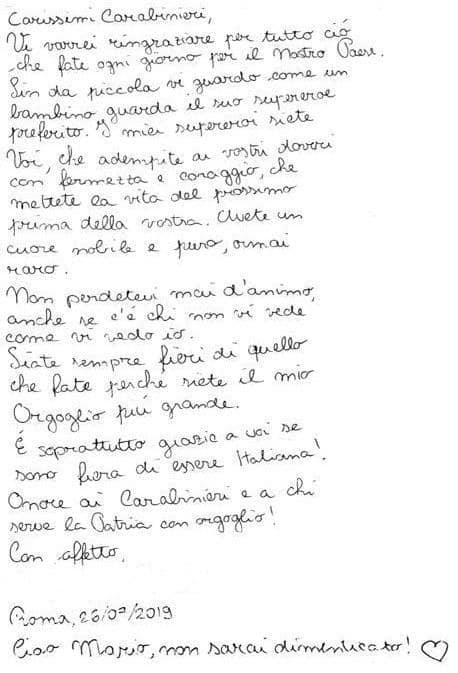 Carissimi Carabinieri,
Vi vorrei ringraziare per tutto ciò
che fate ogni giorno per il Nostro Paese.
Sin da piccola vi guardo come un
bambino guarda il suo supereroe
preferito. I miei supereroi siete
Voi, che adempite ai vostri doveri
con fermezza e coraggio, che
mettete la vita del prossimo
prima della vostra. Avete un
cuore nobile e puro, ormai
raro.
Non perdetevi mai d'animo,
anche se c'è chi non vi vede
come vi vedo io.
Siate sempre fieri di quello
che fate perché siete il mio
Orgoglio più grande.
È soprattutto grazie a voi se
sono fiera di essere Italiana!
Onore ai Carabinieri e a chi
serve la Patria con orgoglio!
Con affetto,
Roma, 26/07/2019
Ciao Mario, non sarai dimenticato! ♡